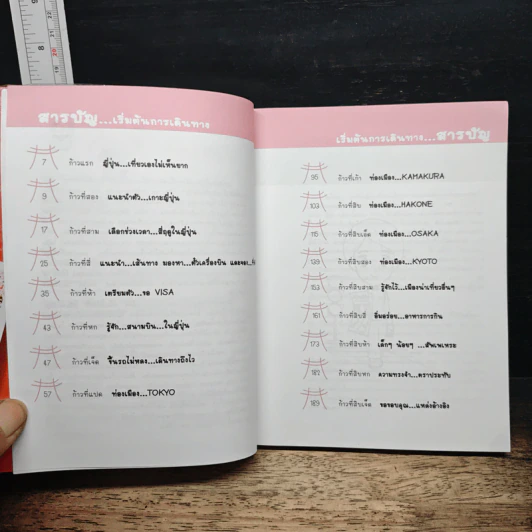 สารบัญ...เริ่มต้นการเดินทาง
7 ก้าวแรก ญี่ปุ่น...เที่ยวเองไม่เห็นยาก
9 ก้าวที่สอง แนะนำตัว...เกาะญี่ปุ่น
17 ก้าวที่สาม เลือกช่วงเวลา...สี่ฤดูในญี่ปุ่น
25 ก้าวที่สี่ แนะนำ...เส้นทาง มองหา...ตั๋วเครื่องบิน และจอง...
35 ก้าวที่ห้า เตรียมตัว...ขอ VISA
43 ก้าวที่หก รู้จัก...สนามบิน...ในญี่ปุ่น
47 ก้าวที่เจ็ด ขึ้นรถไม่หลง...เดินทางยังไง
57 ก้าวที่แปด ท่องเมือง...TOKYO
เริ่มต้นการเดินทาง...สารบัญ
95 ก้าวที่เก้า ท่องเมือง...KAMAKURA
103 ก้าวที่สิบ ท่องเมือง...HAKONE
115 ก้าวที่สิบเอ็ด ท่องเมือง...OSAKA
139 ก้าวที่สิบสอง ท่องเมือง...KYOTO
153 ก้าวที่สิบสาม รู้จักไว้...เมืองน่าเที่ยวอื่นๆ
161 ก้าวที่สิบสี่ อิ่มอร่อย...อาหารการกิน
173 ก้าวที่สิบห้า เล็กๆ น้อยๆ ...สัพเพเหระ
182 ก้าวที่สิบหก ความทรงจำ...ตราประทับ
189 ก้าวที่สิบเจ็ด ขอขอบคุณ...แหล่งอ้างอิง
8
9
20